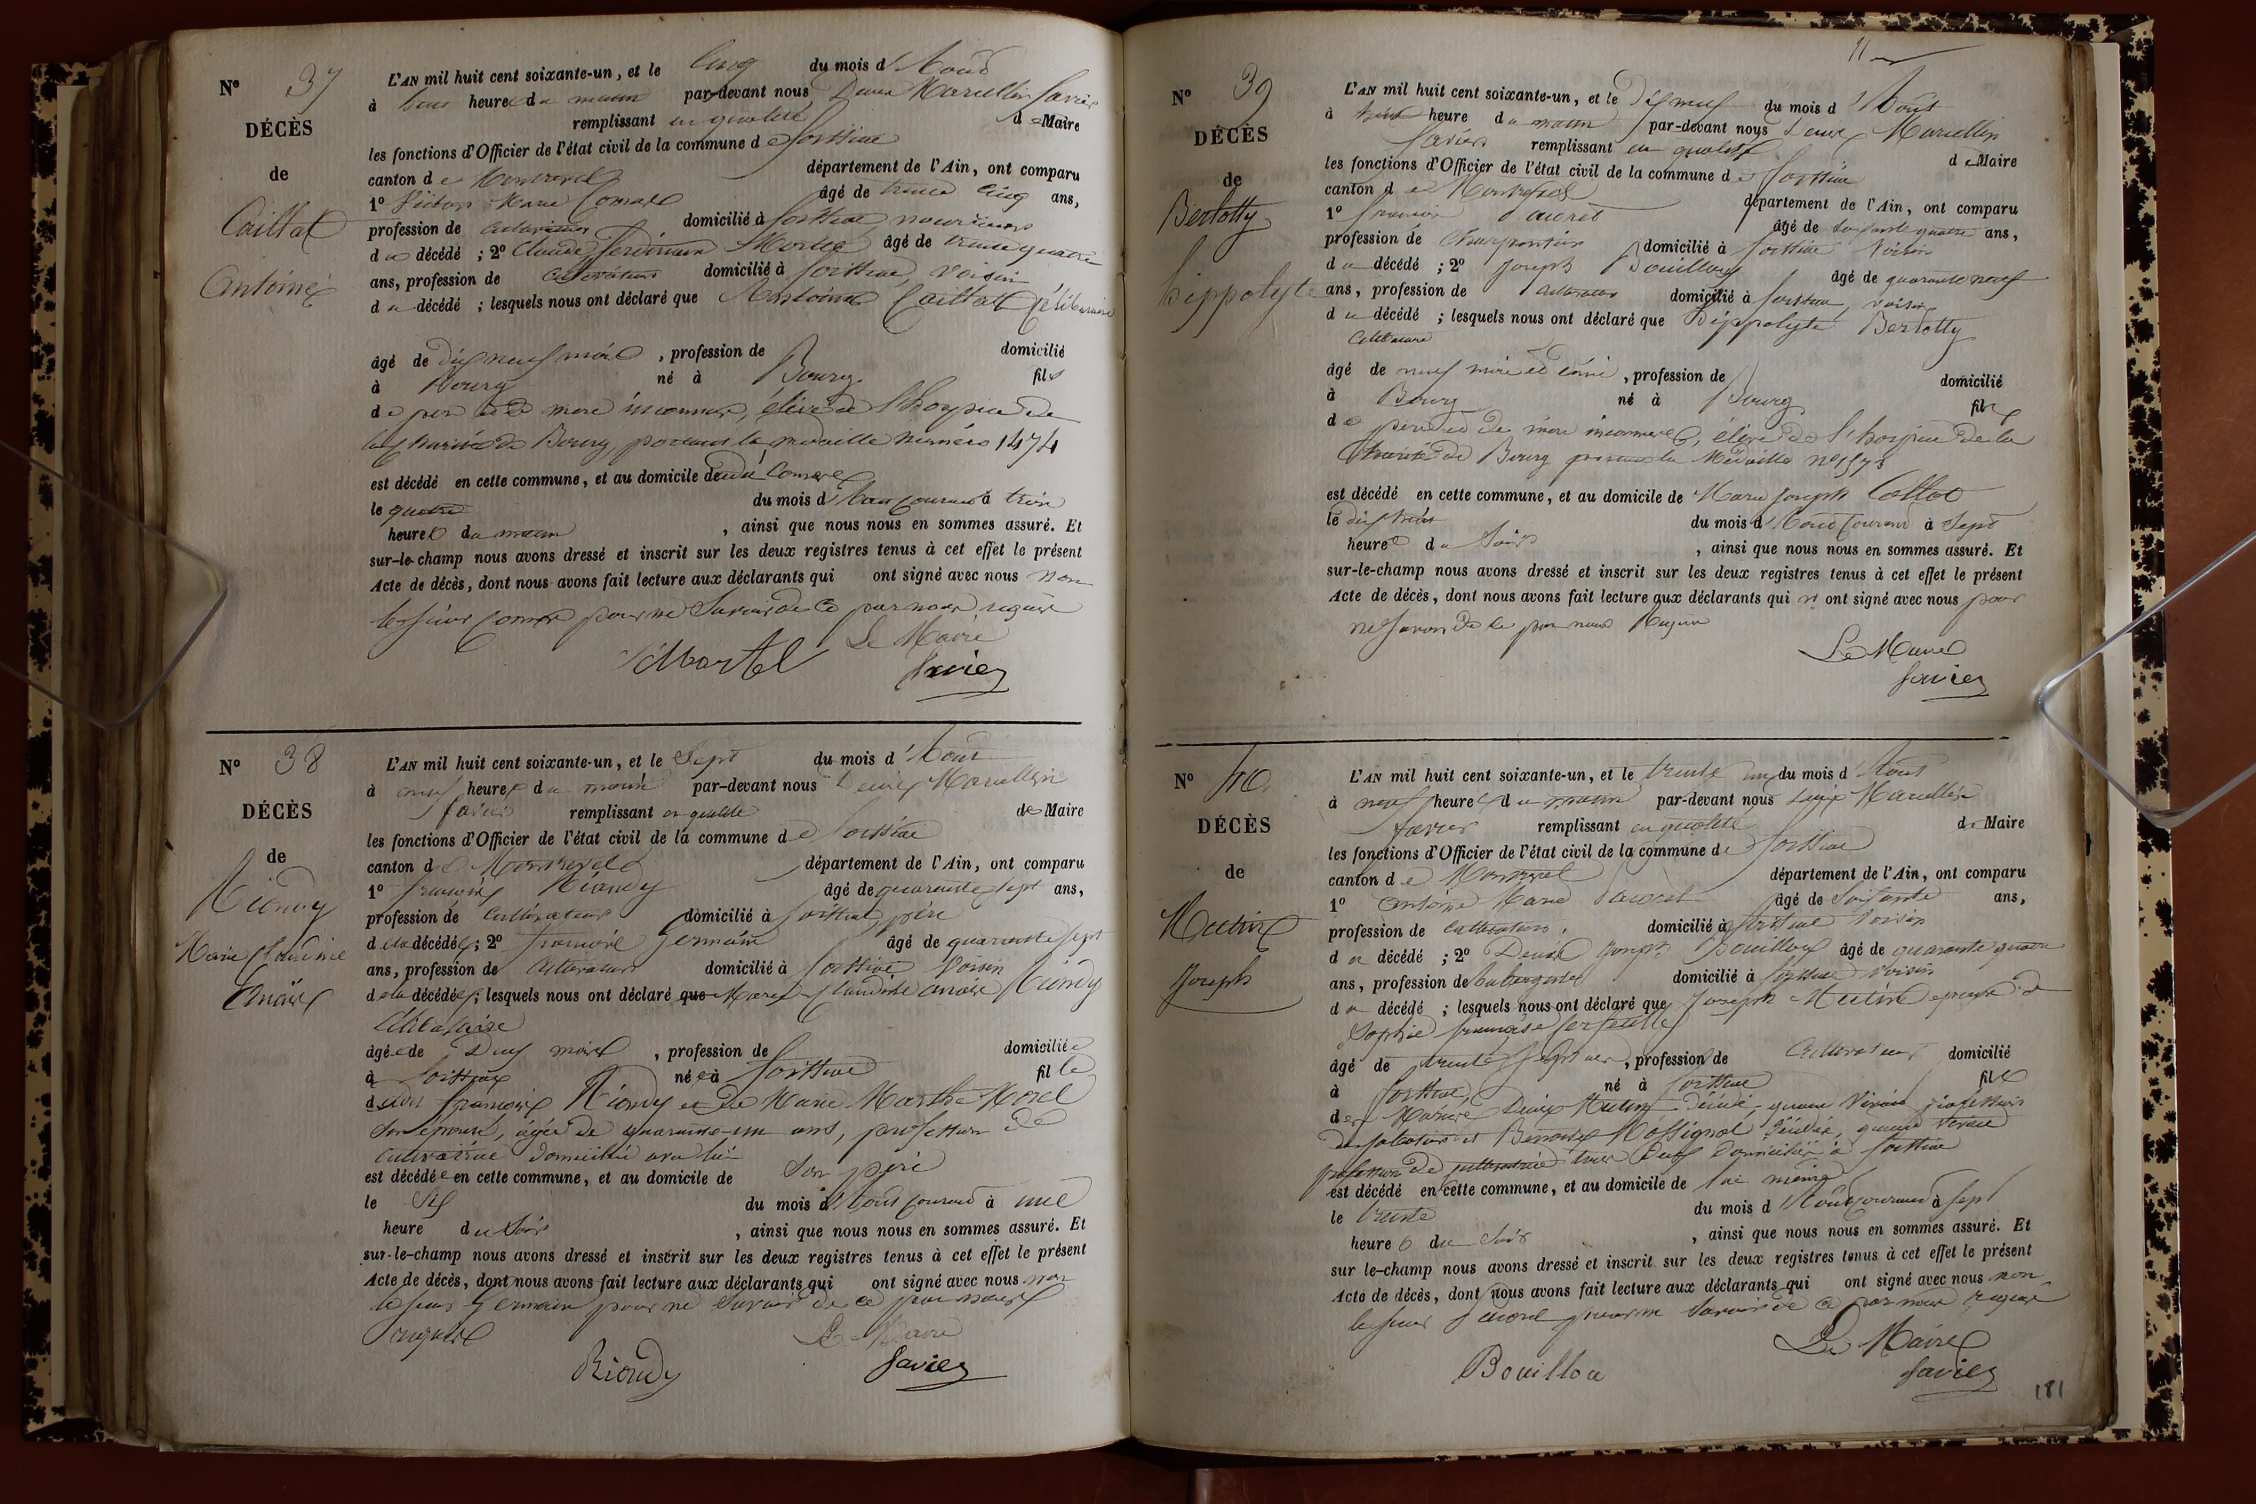 N° 37
DÉCÈS
de
Caillat
Antoine
L'AN mil huit cent soixante-un, et le Cinq du mois d'Aout
à heures du matin par-devant nous Marcellin Savier
remplissant en qualité de Maire
les fonctions d'Officier de l'état civil de la commune de foissiat
canton de Montrevel département de l'Ain, ont comparu
1° Marie Comas âgé de trente cinq ans,
profession de cultivateur domicilié à foissiat, nourricier
du décédé ; 2° Claude ferdinand Martel âgé de trente quatre
ans, profession de cultivateur domicilié à foissiat, voisin
du décédé ; lesquels nous ont déclaré que Antoine Caillat Célibataire
âgé de dix neuf mois , profession de domicilié
à Bourg né à Bourg fils
de père et de mère inconnus, élève de l'hospice de
la charité de Bourg, portant la medaille numéro 1474
est décédé en cette commune, et au domicile dudit Comas
le quatre du mois d'Aout courant à trois
heures du matin , ainsi que nous nous en sommes assuré. Et
sur-le-champ nous avons dressé et inscrit sur les deux registres tenus à cet effet le présent
Acte de décès, dont nous avons fait lecture aux déclarants qui ont signé avec nous non
le sieur Comas pour ne savoir de ce par nous requis
Le Maire
Martel Savier
N° 38
DÉCÈS
de
Riondy
Marie Claudine
Anaïs
L'AN mil huit cent soixante-un, et le Sept du mois d'Aout
à heures du matin par-devant nous Marcellin
Savier remplissant en qualité de Maire
les fonctions d'Officier de l'état civil de la commune de foissiat
canton de Montrevel département de l'Ain, ont comparu
1° françois Riondy âgé de quarante sept ans,
profession de cultivateur domicilié à foissiat, père
de la décédée ; 2° françois Germain âgé de quarante sept
ans, profession de cultivateur domicilié à foissiat voisin
de la décédée ; lesquels nous ont déclaré que Marie Claudine Anaïs Riondy
Célibataire
âgée de mois , profession de domiciliée
à foissiat née à foissiat fille
dudit françois Riondy et de Marie Marthe Morel
son épouse, âgée de quarante-un ans, profession de
cultivatrice domiciliée avec lui
est décédée en cette commune, et au domicile de son père
le Six du mois d'Aout courant à une
heure du soir , ainsi que nous nous en sommes assuré. Et
sur-le-champ nous avons dressé et inscrit sur les deux registres tenus à cet effet le présent
Acte de décès, dont nous avons fait lecture aux déclarants qui ont signé avec nous non
le sieur Germain pour ne savoir de ce par nous
requis Le Maire
Riondy Savier
N° 39
DÉCÈS
de
Bertotty
hippolyte
L'AN mil huit cent soixante-un, et le dix neuf du mois d'Aout
à heure du matin par-devant nous Marcellin
Savier remplissant en qualité de Maire
les fonctions d'Officier de l'état civil de la commune de foissiat
canton de Montrevel département de l'Ain, ont comparu
1° françois âgé de soixante quatre ans,
profession de charpentier domicilié à foissiat voisin
du décédé ; 2° Joseph Bouilloux âgé de quarante neuf
ans, profession de cultivateur domicilié à foissiat, voisin
du décédé ; lesquels nous ont déclaré que hippolyte Bertotty
Célibataire
âgé de neuf mois et demi , profession de domicilié
à Bourg né à Bourg fils
de père et de mère inconnus, élève de l'hospice de la
charité de Bourg portant la Médaille n° 1573
est décédé en cette commune, et au domicile de Marie Joseph Collot
le du mois d'Aout courant à sept
heures du soir , ainsi que nous nous en sommes assuré. Et
sur-le-champ nous avons dressé et inscrit sur les deux registres tenus à cet effet le présent
Acte de décès, dont nous avons fait lecture aux déclarants qui n'ont signé avec nous pour
ne savoir de ce par nous Requis
Le Maire
Savier
N° 40
DÉCÈS
de
Mutin
Joseph
L'AN mil huit cent soixante-un, et le trente un du mois d'Aout
à neuf heures du matin par-devant nous Marcellin
Savier remplissant en qualité de Maire
les fonctions d'Officier de l'état civil de la commune de foissiat
canton de Montrevel département de l'Ain, ont comparu
1° Antoine Marie âgé de soixante ans,
profession de cultivateur domicilié à foissiat voisin
du décédé ; 2° Joseph Bouilloux âgé de quarante quatre
ans, profession de aubergiste domicilié à foissiat voisin
du décédé ; lesquels nous ont déclaré que Joseph Mutin époux de
Sophie françoise
âgé de trente sept ans , profession de cultivateur domicilié
à foissiat, né à foissiat fils
de Mutin décédé, quand vivait profession
de cultivateur et Benoite Mossignol décédée, quand vivait
profession de cultivatrice tous deux domiciliés à foissiat
est décédé en cette commune, et au domicile de lui même
le trente du mois d'Aout courant à sept
heures du soir , ainsi que nous nous en sommes assuré. Et
sur le-champ nous avons dressé et inscrit sur les deux registres tenus à cet effet le présent
Acte de décès, dont nous avons fait lecture aux déclarants qui ont signé avec nous non
le sieur pour ne savoir de ce par nous requis
Le Maire
Bouilloux Savier
181